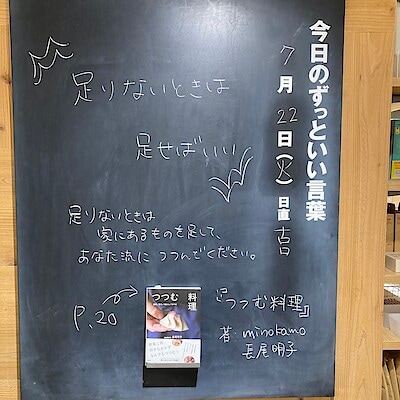 今日のずっといい言葉
7月22日(火)日直 吉
足りないときは
足せばいい
足りないときは
家にあるものを足して、
あなた流につつんでください。
P.20
つつむ 料理
『つつむ料理』
著・minokamo
長尾明子